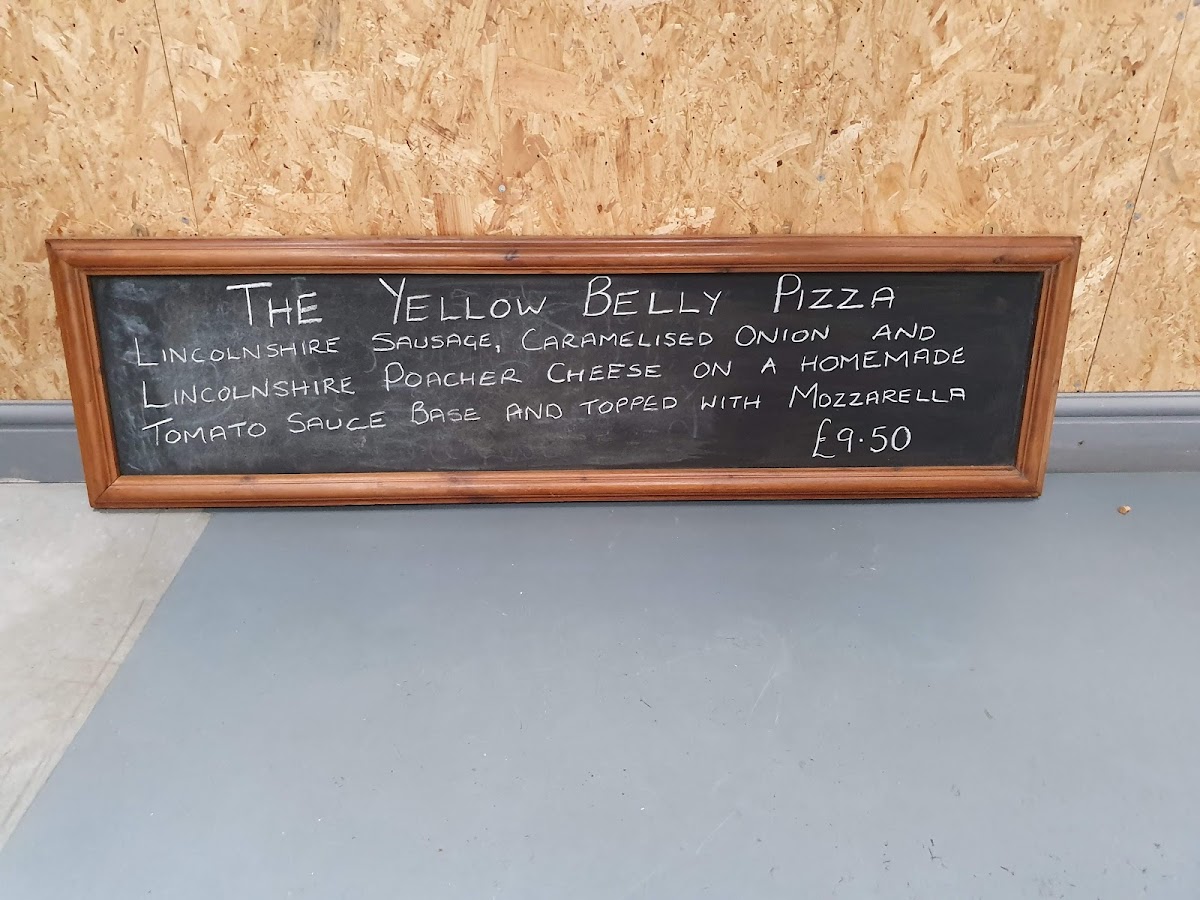 The Yellow Belly Pizza
Lincolnshire Sausage, Caramelised Onion and
Lincolnshire Poacher Cheese on a homemade
Tomato Sauce Base and topped with Mozzarella
£9.50